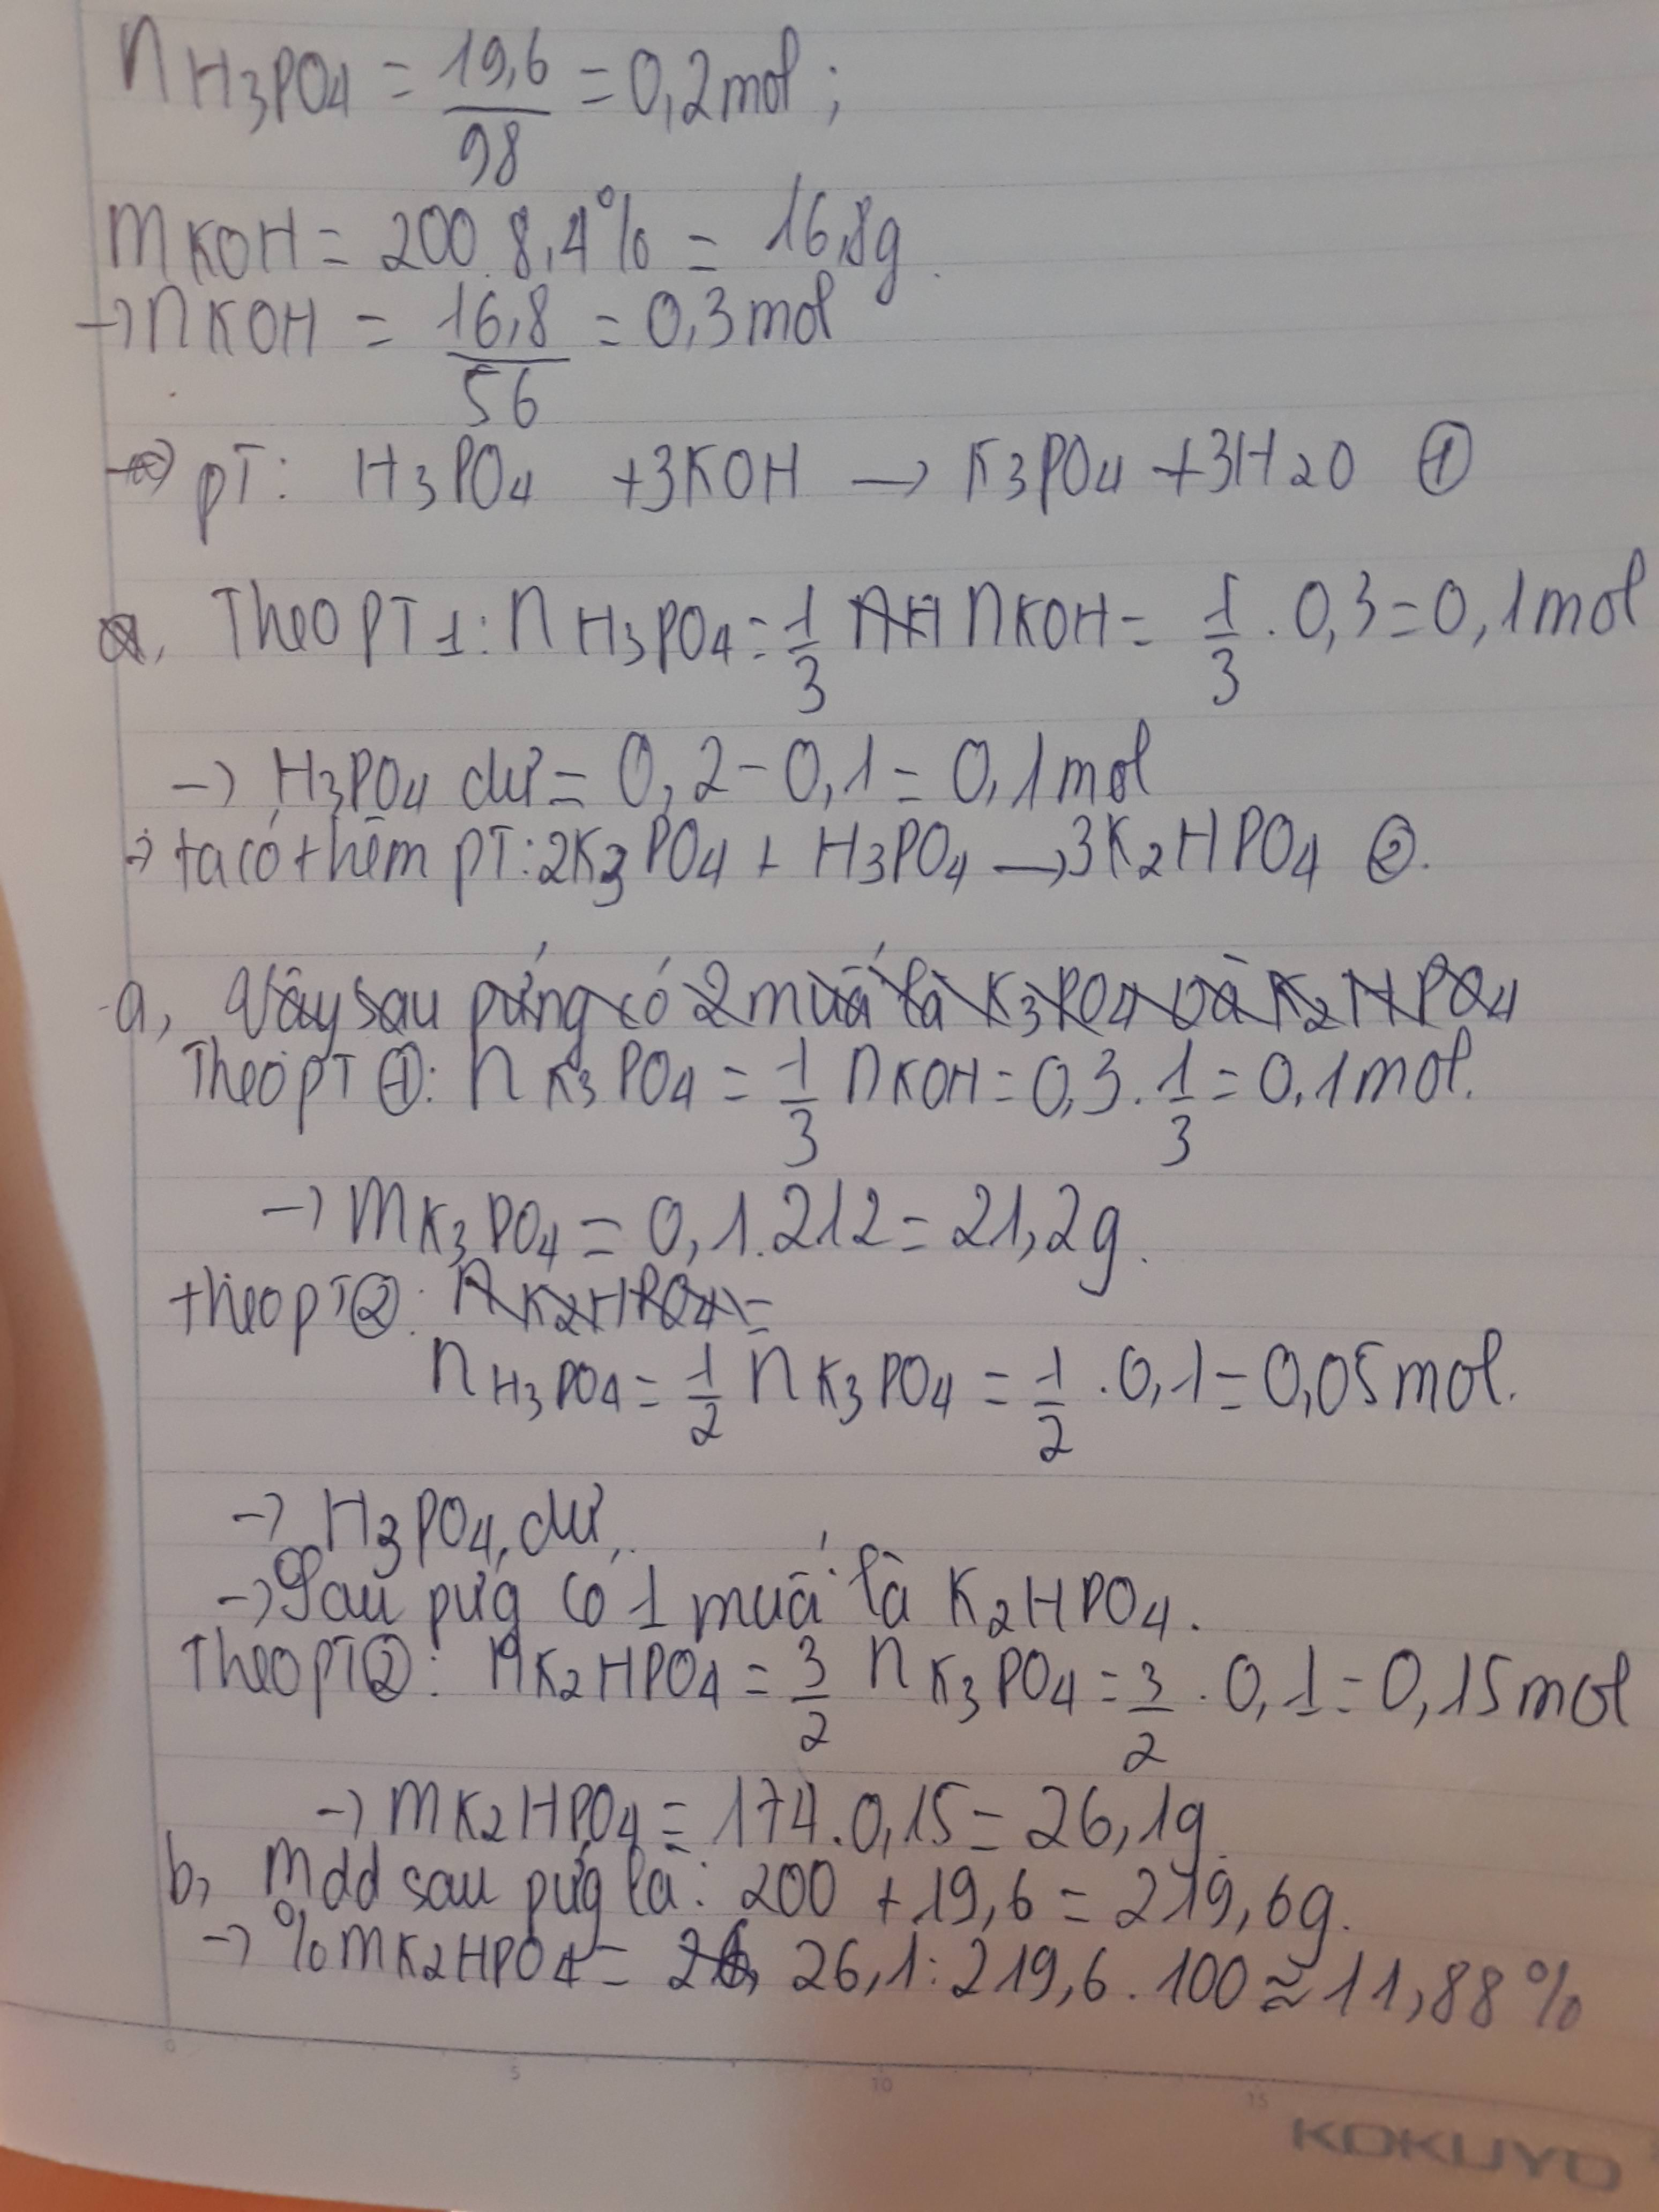 nH3PO4 = 19,6/98 = 0,2mol;
mKOH = 200.8,4% = 16,8g.
→nKOH = 16,8/56 = 0,3mol
pT: H3PO4 +3KOH → K3PO4 +3H2O ①
a, Theo PT1: nH3PO4 = 1/3 nH nKOH = 1/3 . 0,3 = 0,1mol
→ H3PO4 dư = 0,2 - 0,1 = 0,1mol
→ ta có thêm pT: 2K3PO4 + H3PO4 → 3K2HPO4 ②.
a, Vậy sau pứng có 2 muối là K3PO4 và K2HPO4
Theo pT ①: nK3PO4 = 1/3 nKOH = 0,3 . 1/3 = 0,1mol.
→ mK3PO4 = 0,1.212 = 21,2g.
theo pT②: nK2HPO4 =
nH3PO4 = 1/2 nK3PO4 = 1/2 . 0,1 = 0,05mol.
→ H3PO4 dư,
→ Sau pứg có 1 muối là K2HPO4.
Theo pT②: nK2HPO4 = 3/2 nK3PO4 = 3/2 . 0,1 = 0,15mol
→ mK2HPO4 = 174.0,15 = 26,1g
b, mdd sau pứg là: 200 + 19,6 = 219,6g.
→ %mK2HPO4 = 26, 26,1:219,6.100 ≈ 11,88%
0 5 10 15
KOKUYO